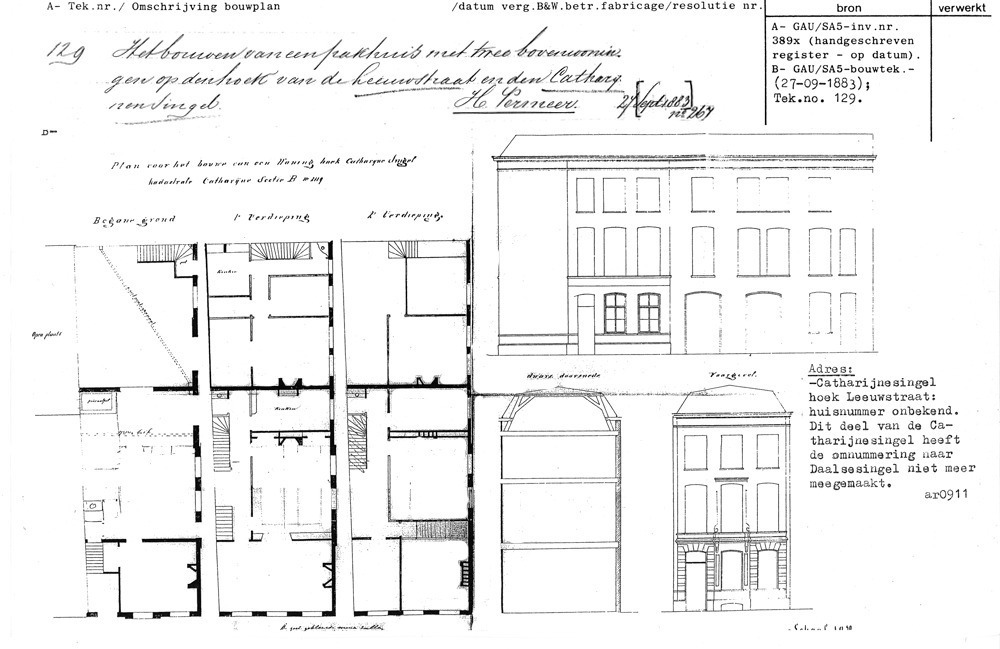 A- Tek.nr./ Omschrijving bouwplan /datum verg.B&W.betr.fabricage/resolutie nr.
bron
verwerkt
129 Het bouwen van een pakhuis met twee bovenwonin-
gen op den hoek van de Leeuwstraat en den Catharij
nen Singel.
H. Vermeer. 27 [Sept. 1883] nº 267
A- GAU/SA5-inv.nr.
389x (handgeschreven
register - op datum).
B- GAU/SA5-bouwtek.-
(27-09-1883);
Tek.no. 129.
D-
Plan voor het bouwe van een Woning hoek Catharijne Singel
kadastrale Catharijne Sectie B nº
Begane grond
1e Verdieping
2e Verdieping
Keuken
Open plaats
Keuken
Dwars doorsnede
Voorgevel.
Adres:
-Catharijnesingel
hoek Leeuwstraat:
huisnummer onbekend.
Dit deel van de Ca-
tharijnesingel heeft
de omnummering naar
Daalsesingel niet meer
meegemaakt.
ar0911
Schaal